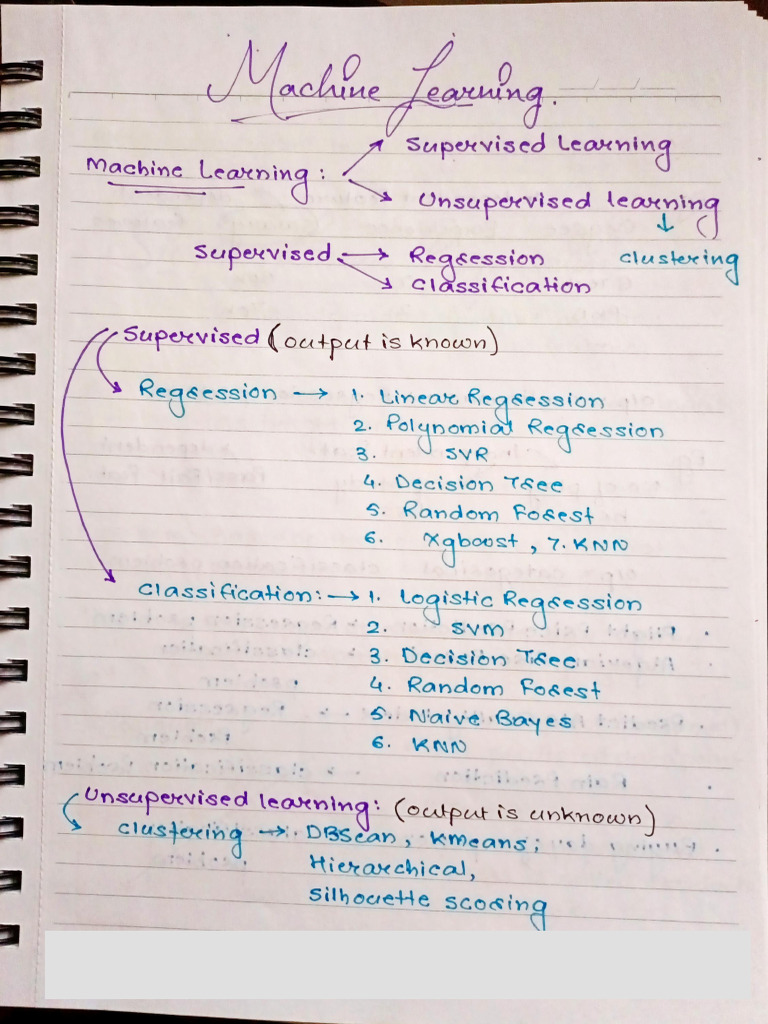 Machine Learning.
Machine Learning : → Supervised Learning
→ Unsupervised learning
↓
Supervised → Regression clustering
→ Classification
Supervised (output is known)
Regression → 1. Linear Regression
2. Polynomial Regression
3. SVR
4. Decision Tree
5. Random Forest
6. Xgboost , 7. KNN
Classification: → 1. Logistic Regression
2. SVM
3. Decision Tree
4. Random Forest
5. Naive Bayes
6. KNN
Unsupervised learning: (output is unknown)
clustering → DBScan, Kmeans;
Hierarchical,
Silhouette scoring